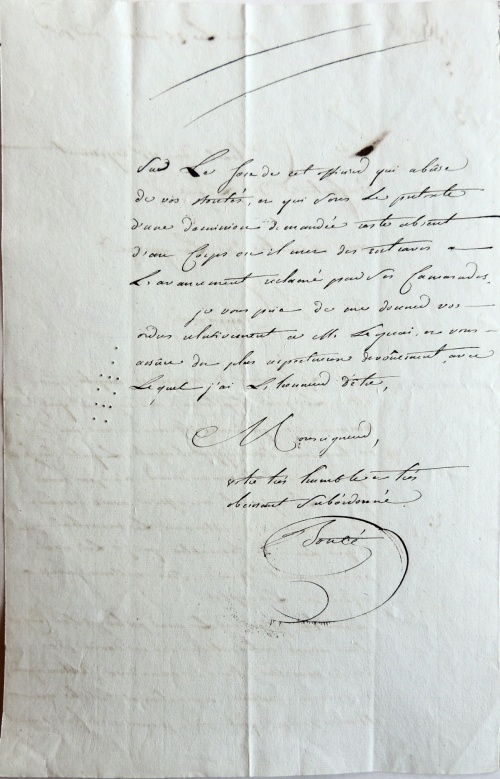 Sur Le sort de cet officier qui abuse
de vos bontés, et qui sous Le pretexte
d'une demission demandée reste absent
d'un Corps ou il met des entraves a
L'avancement reclamé par Ses Camarades.
je vous prie de me donner vos
ordres relativement a M. Lequai, et vous
assure du plus respectueux devouement avec
Lequel j'ai L'honneur d'être,
Monseigneur,
votre très humble et très
obeissant Subordonné.